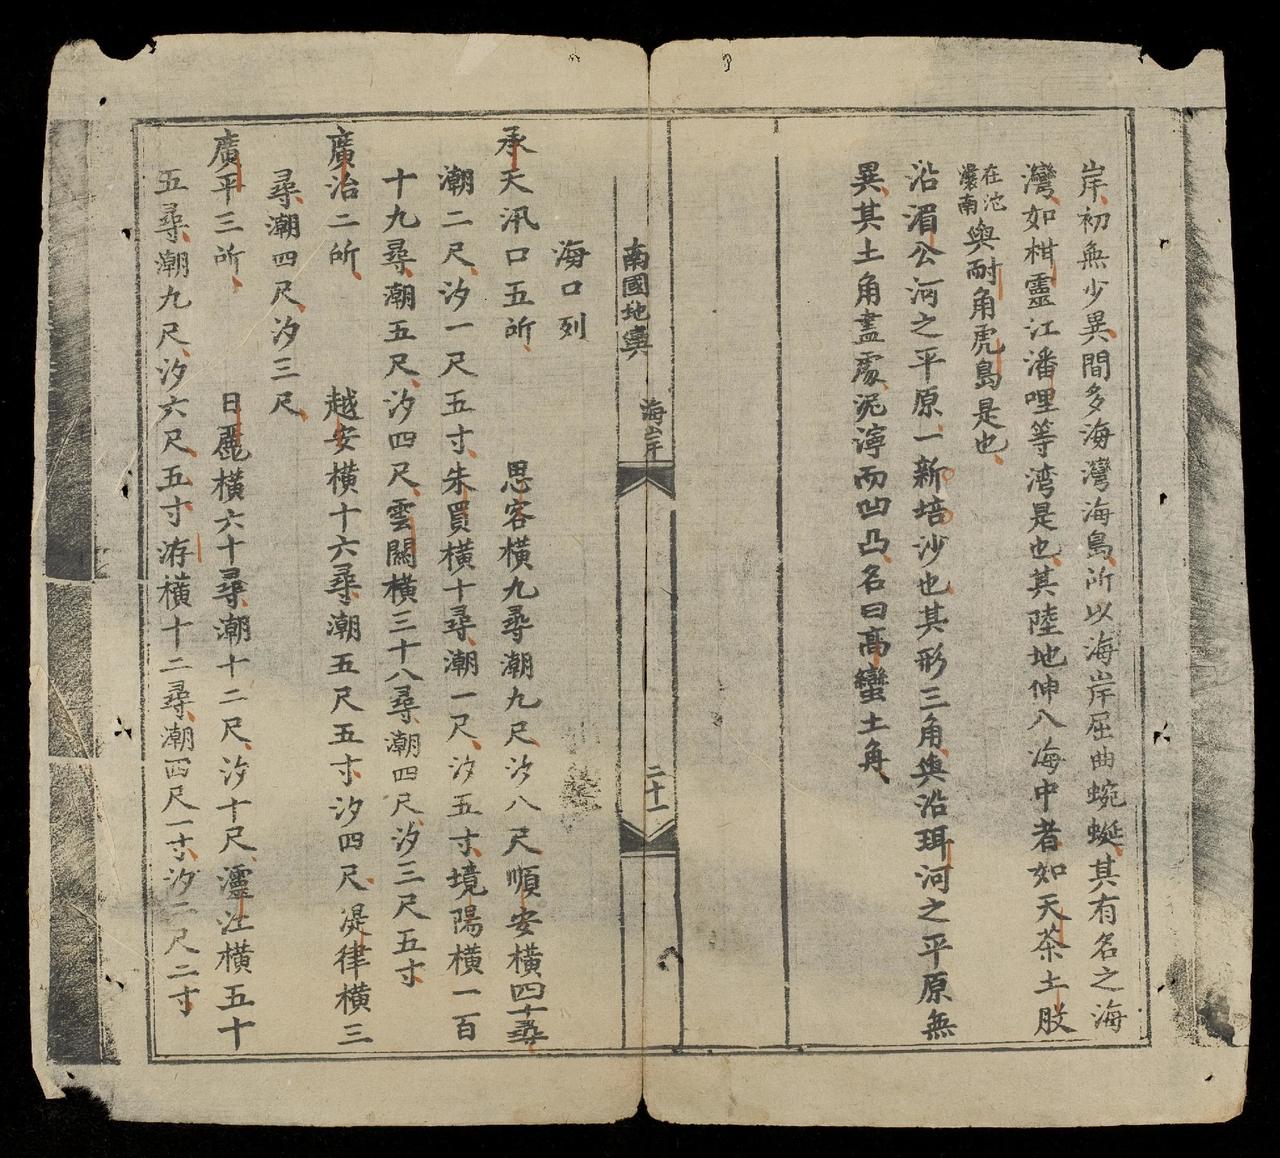 岸初無少異間多海灣海島所以海岸屈曲蜿蜒其有名之海
灣如柑靈江潘哩等湾是也其陸地伸入海中者如天茶土股
在沱㶞南與耐角虎島是也
沿湄公河之平原一新培沙也其形三角與沿珥河之平原無
異其土角盡處泥濘而凹凸名曰高蠻土角
南國地輿 海岸 二十一
海口列
承天汛口五所 思容橫九尋潮九尺汐八尺順安橫四十尋
潮二尺汐一尺五寸朱買橫十尋潮一尺汐五寸境陽橫一百
十九尋潮五尺汐四尺雲關橫三十八尋潮四尺汐三尺五寸
廣治二所 越安橫十六尋潮五尺五寸汐四尺㵑律橫三
尋潮四尺汐三尺
廣平三所 日麗橫六十尋潮十二尺汐十尺灵江橫五十
五尋潮九尺汐六尺五寸洊橫十二尋潮四尺一寸汐二尺二寸